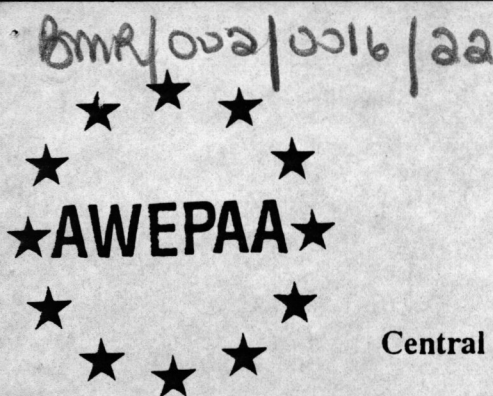 BMR/002/0016/22
AWEPAA
Central